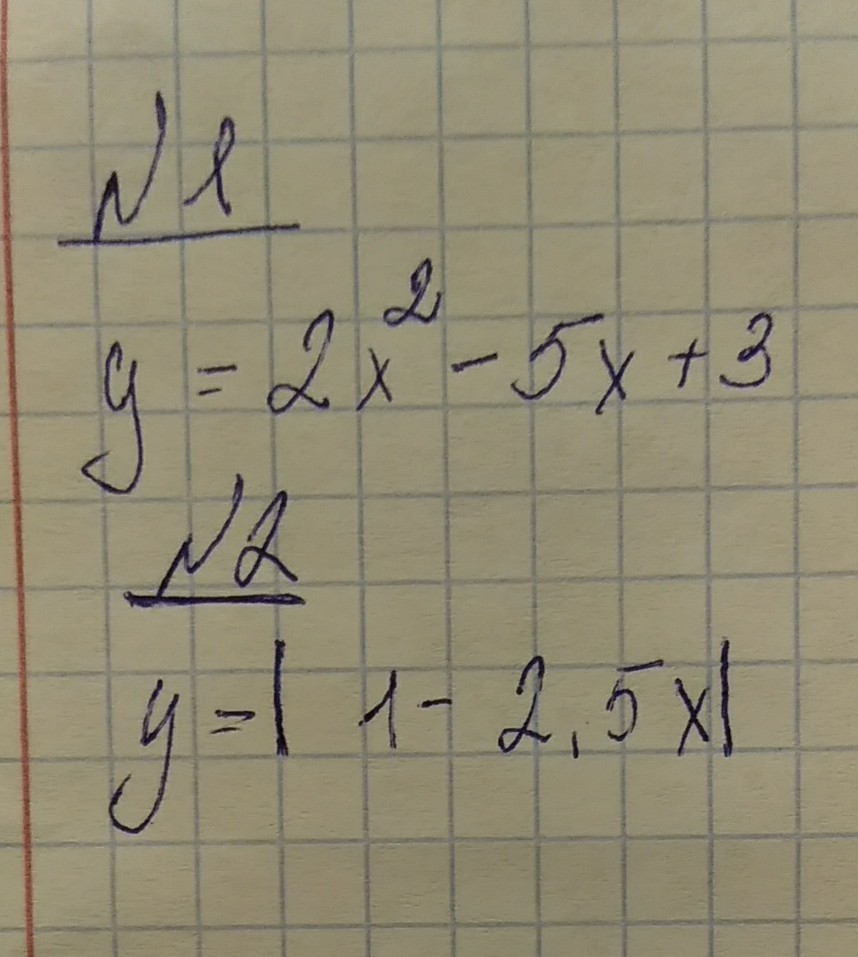 N1
y = 2x² - 5x + 3
N2
y = | 1 - 2,5x|